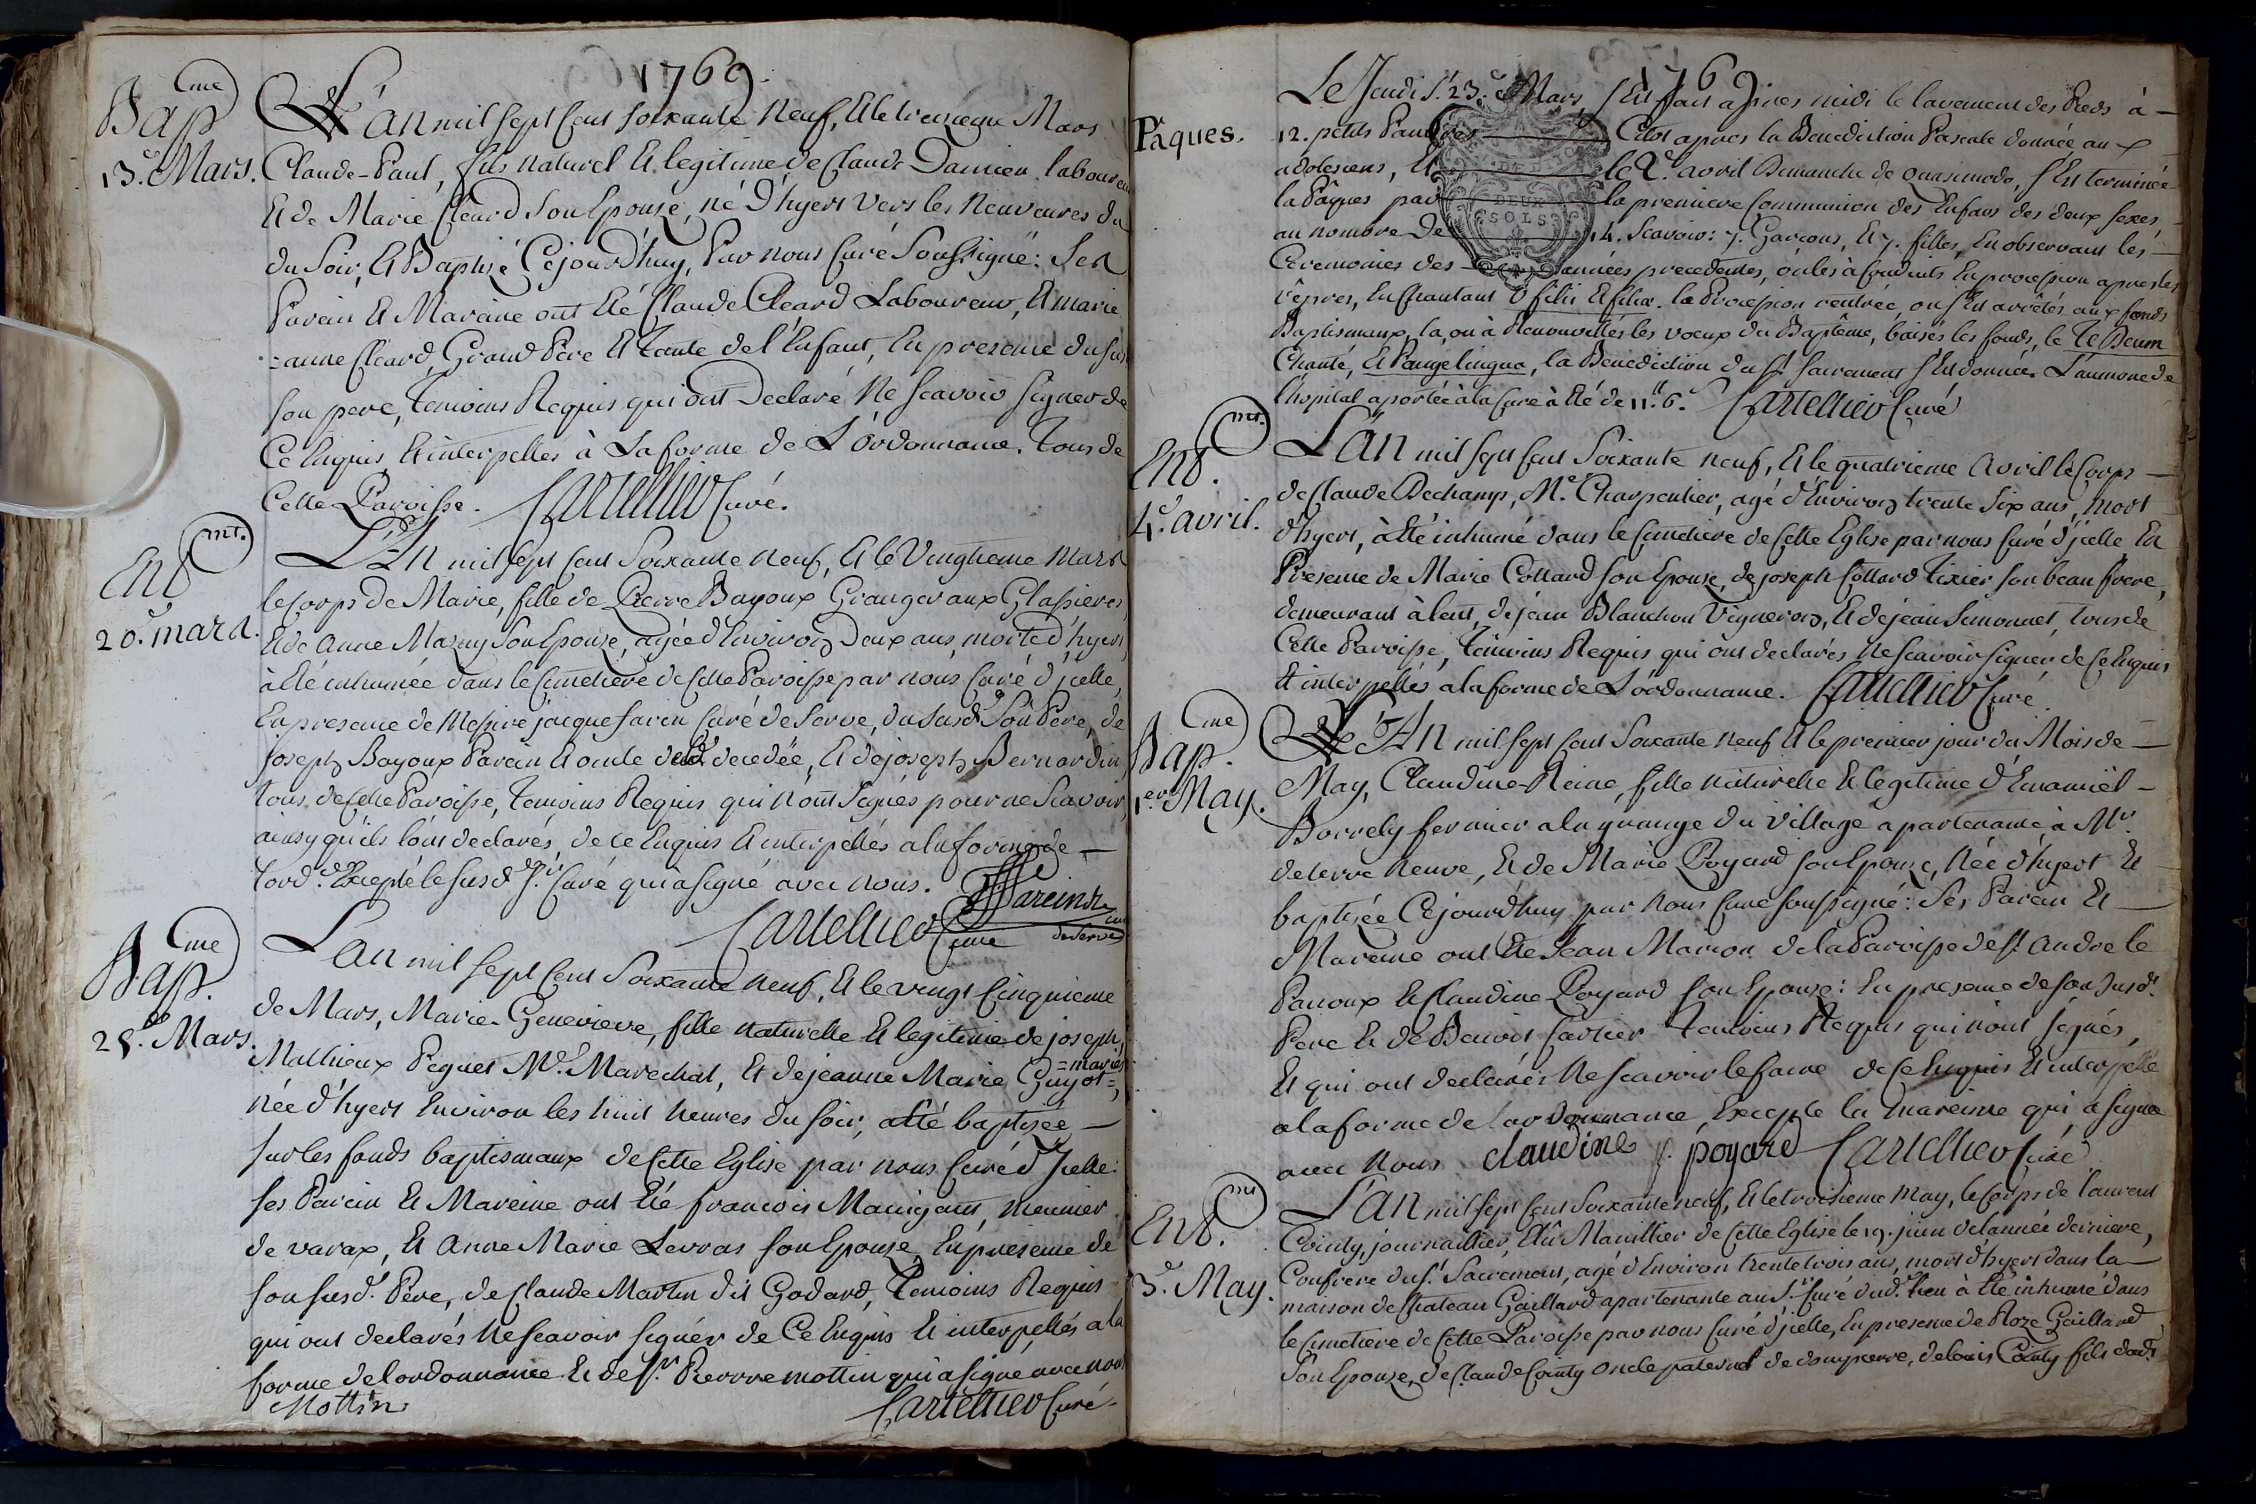 1769.
Bapme
13.e Mars.
L'An mil sept Cent soixante Neuf, Et le treizieme Mars
Claude-Paul, fils naturel Et legitime de Claude Damien laboureur
Et de Marie Cleard Son Epouse, né D'hyert vers les Neuveures du
du Soir, Et Baptisé Cejourd'huy, Par nous Curé Soussigné: Ses
Parein Et Mareine ont Eté Claude Cleard Laboureur, Et marie
=anne Cleard, Grand Pere Et Tante de l'Enfant, En presence du sus
son pere, Temoins Requis qui ont Declaré Ne scavoir signer de
Ce Enquis Et interpelles à La forme de L'ordonnance. Tous de
Cette Paroisse. Cartellier Curé.
Entmt.
20.e mars.
L'An mil sept Cent Soixante Neuf, Et le Vingtieme Mars
le Corps de Marie, fille de Pierre Bayoux Granger aux Glassieres,
Et de Anne Mazuy Son Epouse, agée d'Environ Deux ans, morte d'hyert,
à Eté inhumée dans le Cimetiere de Cette Paroisse par nous Curé d'jcelle,
En presence de Messire jacque farein Curé de Serve, du susd. Son Pere, de
Joseph Bayoux Parein Et oncle de lad. decedée, Et de joseph Bernardin,
tous de Cette Paroisse, Temoins Requis qui n'ont Signés pour ne Scavoir,
ainsy qu'ils l'ont declarés, de ce Enquis Et interpellés a la forme de —
l'ord.ce Excepté le susd. Sr. Curé qui a signé avec nous. Fareinz
Cartellier Curé curé de Serve
Bapme.
25.e Mars.
L'an mil sept Cent Soixante neuf, Et le vingt Cinquieme
de Mars, Marie-Genevieve, fille naturelle Et legitime de joseph,
Mathieux Peguet Md. Marechal, Et de jeanne Marie Guyot =mariés=,
née d'hyert Environ les huit heures du soir, a Eté baptisée —
sur les fonds baptismaux de Cette Eglise par nous Curé d'Jcelle:
ses Parein Et Mareine ont Eté francois Mauigant, meunier
de varax, Et Anne Marie Levras son Epouse, En presence de
son susd. Pere, de Claude Martin dit Godard, Temoins Requis
qui ont declarés Ne scavoir signer de Ce Enquis Et interpellés a la
forme de l'ordonnance Et de Sr. Pierre mottin qui a signé avec nous
Mottin Cartellier Curé.
1769
Pâques.
Le Jeudi St. 23.e Mars, s'Est fait apres midi le lavement des Pieds à —
12. petits Pauvres Citot apres la Benediction Pascale donnée aux
adolesciens, Et le 2.e avril Dimanche de Quasimodo, s'Est terminée
la Pâques par la premiere Communion des Enfans des deux sexes,
au nombre De 14. Scavoir: 7. Garcons, Et 7. filles, En observant les —
Ceremonies des années precedentes, on les à Conduits En procession apres les
vêpres, En Chantant O filii Et filiæ. la Procession rentrée, on s'Est arrêtés aux fonds
Baptismaux, la, on à Renouvellés les voeux du Baptême, baisés les fonds, le Te Deum
Chanté, Et Pange lingua, la Benediction du St. Sacrement s'Est donnée. L'aumone de
l'hopital aportée à la Cure à Eté de 11.# 6.s Cartellier Curé
DEUX
SOLS
Entmt.
4.e avril.
L'An mil sept Cent Soixante neuf, Et le quatrieme avril le Corps —
de Claude Dechamp, Me. Charpentier, agé d'Environ trente Six ans, mort
d'hyert, à Eté inhumé dans le Cimetiere de Cette Eglise par nous Curé d'jcelle En
Presence de Marie Collard son Epouse, de joseph Collard Tixier son beau frere,
demeurant à lent, de jean Blanchon Vigneron, Et de jean Simonnet, tous de
Cette Paroisse, Temoins Requis qui ont declarés Ne scavoir signer de Ce Enquis
Et interpellés a la forme de L'ordonnance. Cartellier Curé.
Bapme.
1.er May.
L'An mil sept Cent Soixante neuf Et le premier jour du Mois de —
May, Claudine-Reine, fille naturelle Et legitime d'Emamiël —
Borrely fermier a la grange du village apartenante à Mr.
de terre Neuve, Et de Marie Poyard son Epouse, Née d'hyert Et
baptisée Cejourd'huy par nous Curé soussigné: Ses Parein Et —
Mareine ont Eté Jean Marion de la Paroisse de St. andre le
Panoux Et Claudine Poyard son Epouse: En presence de son susd.
Pere Et de Benoit Cartier Temoins Requis qui n'ont signés,
Et qui ont declarés Ne scavoir le faire de Ce Enquis Et interpellé
a la forme de l'ordonnance, Excepté la mareine qui a signée
avec Nous claudine poyard Cartellier Curé
Entmt.
3.e May.
L'An mil sept Cent Soixante neuf, Et le troisieme May, le Corps de laurent
Cointy, journaillier, Elû Manillier de Cette Eglise le 19. juin de l'année derniere,
Confrere du St. Sacrement, agé d'Environ trente trois ans, mort d'hyert dans la —
maison de Chateau Gaillard apartenante au Sr. Curé dud. lieu à Eté inhumé dans
le Cimetiere de Cette Paroisse par nous Curé d'jcelle, En presence de Roze Gaillard
son Epouze, de Claude Cointy oncle paternel de dompierre, de louis Cointy fils dud.